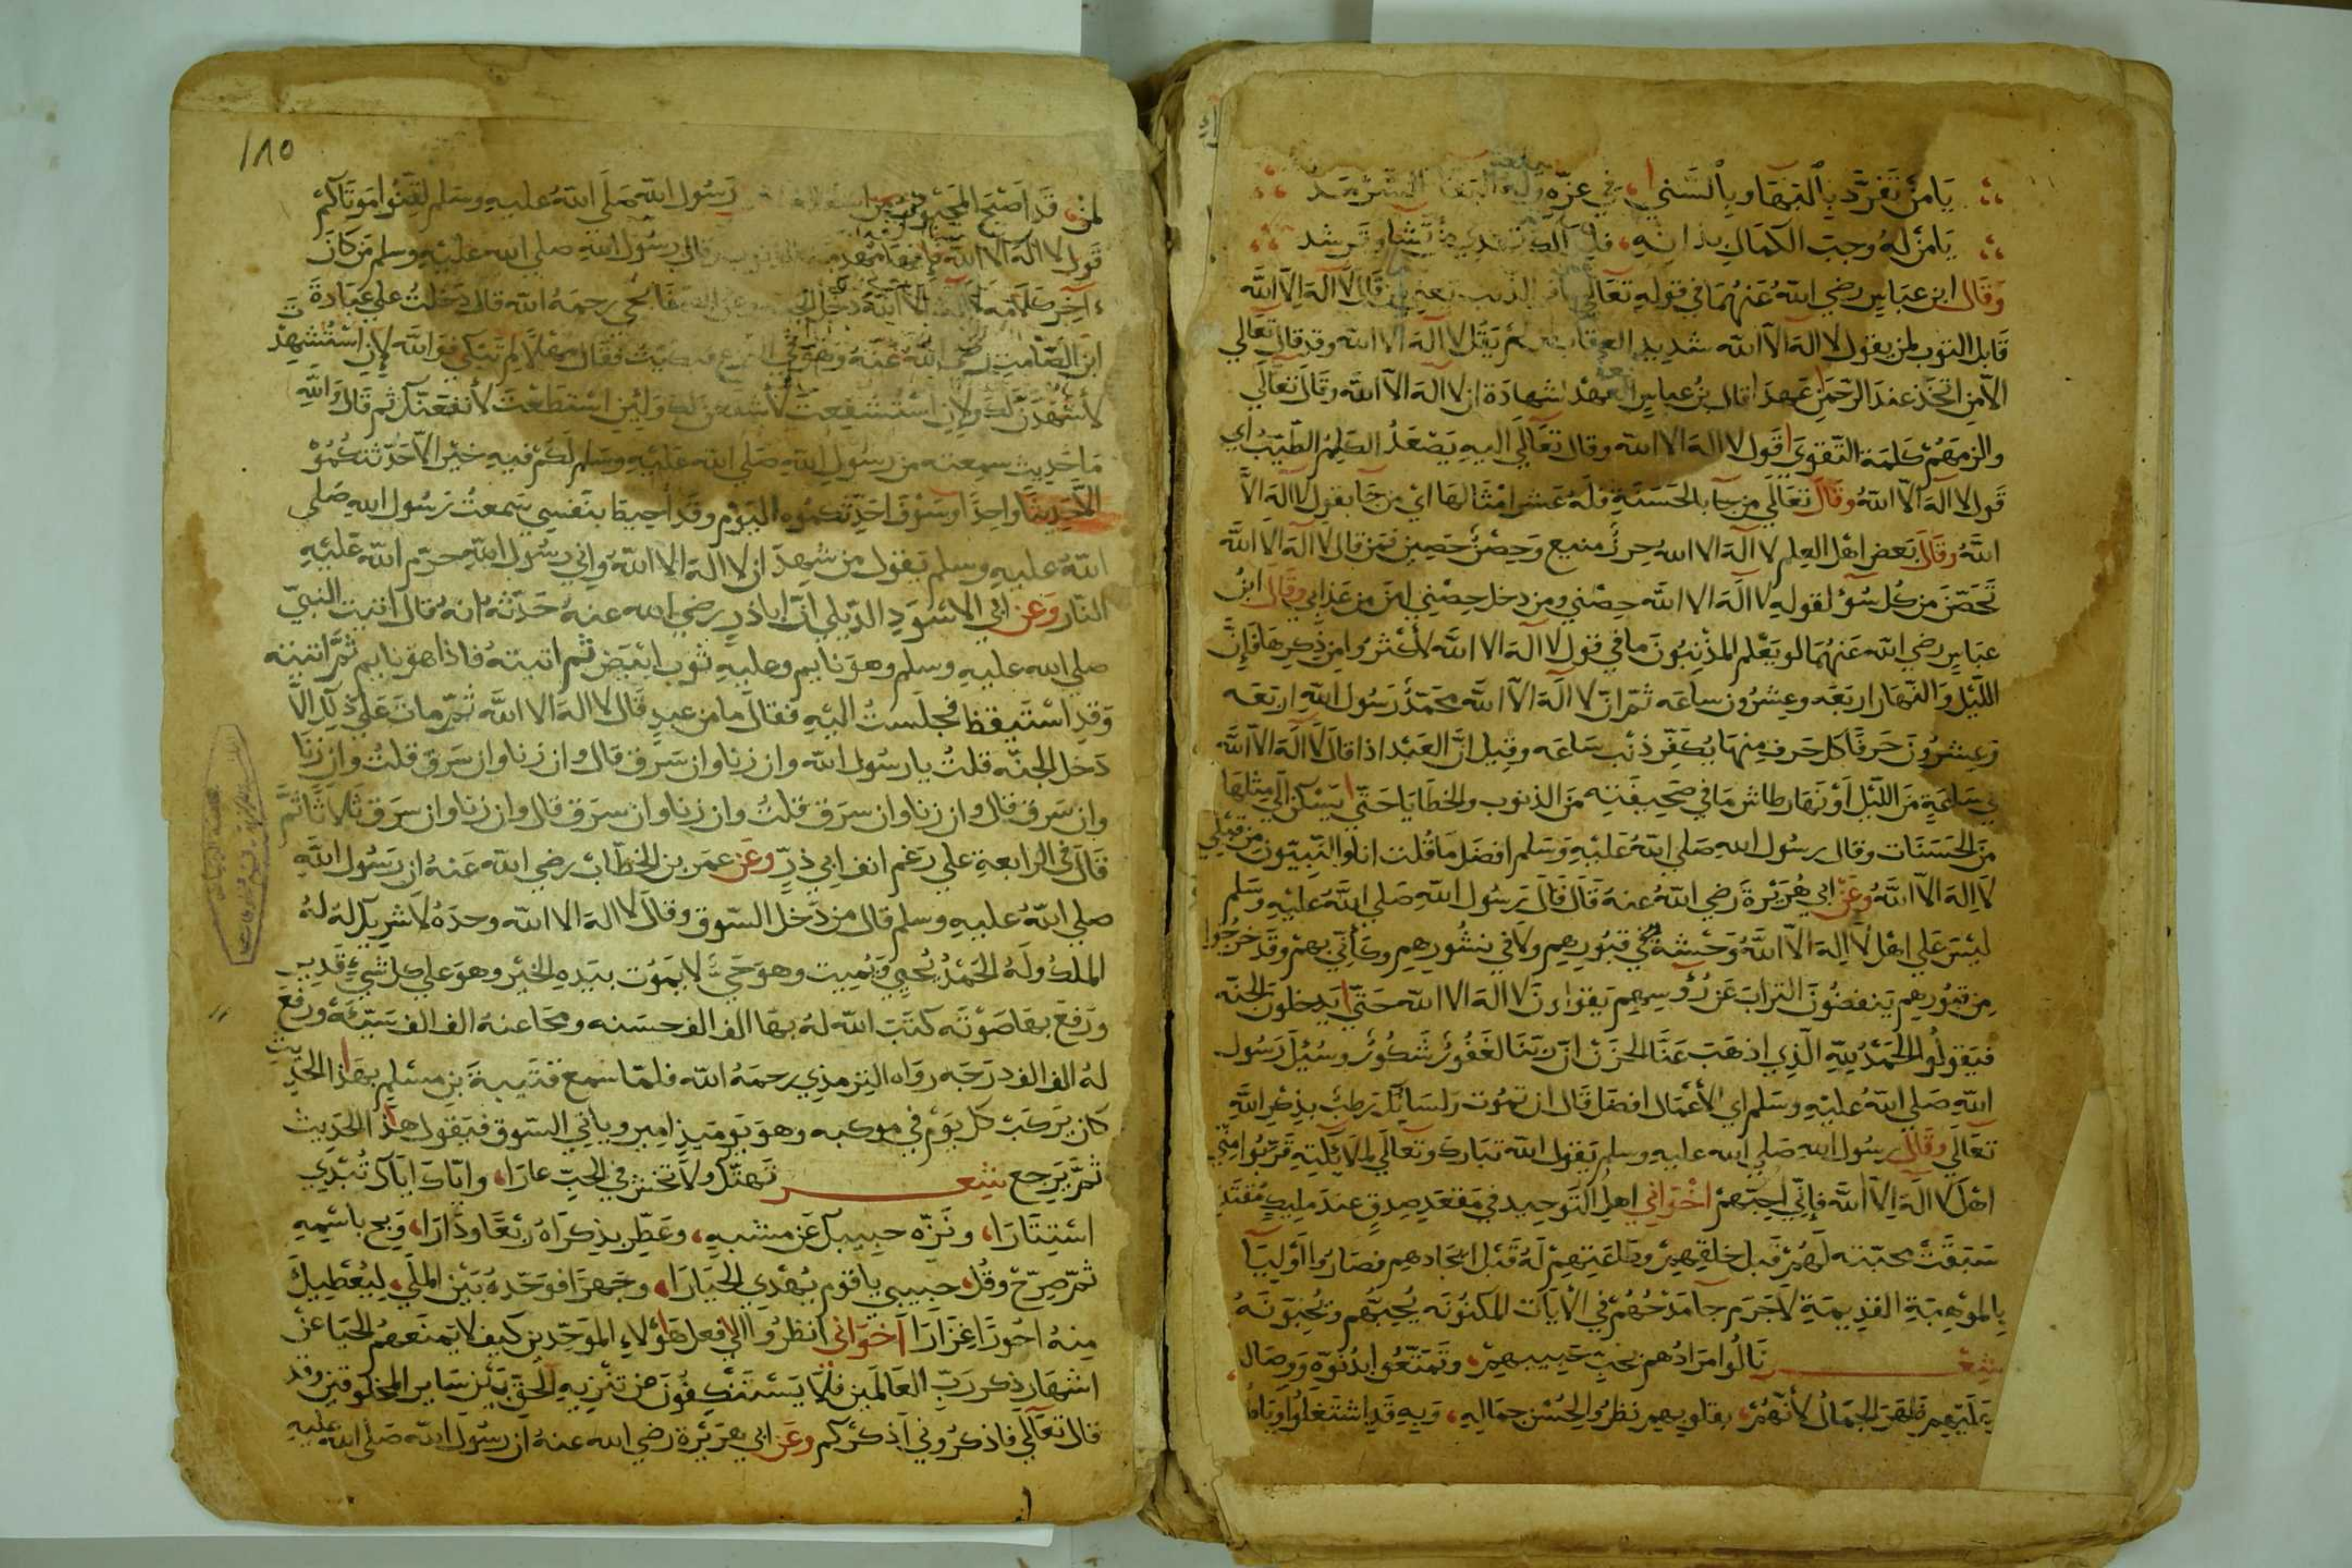 يَامَنْ تَفَرَّدَ بِالْبَهَا وبِالسَّنَى، في عزّه وله البقا السرمد
يَامَنْ لهُ وجب الكمال بذاته، فلذلك تهدي من تشا وترشد
وَقَال ابن عباس رضي الله عنهما في قوله تعالي غافر الذنب يعني لمن قال لا اله الا الله
قابل التوب لمن يقول لا اله الا الله شديد العقاب لمن لم يقل لا اله الا الله وقد قال تعالي
الا من اتخذ عند الرحمن عهدا قال بن عباس العهد شهادة ان لا اله الا الله وقال تعالي
والزمهم كلمة التقوى قول لا اله الا الله وقال تعالي اليه يصعد الكلم الطيب اي
قول لا اله الا الله وقال تعالي من جا بالحسنة فله عشر امثالها اي من جا بقول لا اله الا
الله وقال بعض اهل العلم لا اله الا الله حرز منيع وحصن حصين فمن قال لا اله الا الله
تحصّن من كل سوء لقوله لا اله الا الله حصني ومن دخل حصني امن من عذابي وقال ابن
عباس رضي الله عنهما لو يعلم المذنبون ما في قول لا اله الا الله لأكثروا من ذكرها فإن
الليل والنهار اربعه وعشرون ساعه ثم ان لا اله الا الله محمد رسول الله اربعه
وعشرون حرفا كل حرف منها يكفر ذنب ساعه وقيل ان العبد اذا قال لا اله الا الله
في ساعة من الليل أو نهار طاش ما في صحيفته من الذنوب والخطايا حتي يسكن الي مثلها
من الحسنات وقال رسول الله صلي الله عليه وسلم افضل ما قلت انا والنبيون من قبلي
لا اله الا الله وعن ابي هريرة رضي الله عنه قال قال رسول الله صلي الله عليه وسلم
ليس علي اهل لا اله الا الله وحشة في قبورهم ولا في نشورهم وكأني بهم وقد خرجوا
من قبورهم ينفضون التراب عن رؤسهم يقولون لا اله الا الله حتي يدخلون الجنه
فيقولوا الحمد لله الذي اذهب عنا الحزن ان ربنا لغفور شكور وسئل رسول
الله صلي الله عليه وسلم اي الأعمال افضل قال ان تموت ولسانك رطب بذكر الله
تعالي وقال رسول الله صلي الله عليه وسلم يقول الله تبارك وتعالي لملائكته قربوا مني
اهل لا اله الا الله فإني احبهم اخواني اهل التوحيد في مقعد صدق عند مليك مقتدر
سبقت محبته لهم قبل خلقهم وطاعتهم له قبل ايجادهم فصاروا أوليا
بالموهبة القديمة لا جرم جا مدحهم في الأيات المكنونه يحبهم ويحبونه
شعر نالوا مرادهم بحب حبيبهم، وتمتعوا بدنوه ووصال
يمليهم ظهر الجمال لأنهم، بقلوبهم نظروا لحسن جماله، وبه قد اشتغلوا
١٨٥
لمن، قد اصبح المحبوب من رسول الله صلي الله عليه وسلم لقنوا موتاكم
قول لا اله الا الله فإنها تهدم الذنوب وقال رسول الله صلي الله عليه وسلم من كان
ءاخر كلامه لا اله الا الله دخل الجنه وعن الصنابحي رحمه الله قال دخلت علي عبادة
ابن الصامت رضي الله عنه وهو في النزع فبكيت فقال مهلا لم تبكي فوالله لإن استشهدت
لأشهدن لك ولإن استشفعت لأشفعن لك ولئن استطعت لأنفعنك ثم قال والله
ما حديث سمعته من رسول الله صلي الله عليه وسلم لكم فيه خير الا حدثتكموه
الا حديثا واحدا وسوف احدثكموه اليوم وقد أحيط بنفسي سمعت رسول الله صلي
الله عليه وسلم يقول من شهد ان لا اله الا الله واني رسول الله حرم الله عليه
النار وعن ابي الاسود الديلي ان اباذر رضي الله عنه حدثه انه قال اتيت النبي
صلي الله عليه وسلم وهو نايم وعليه ثوب ابيض ثم اتيته فاذا هو نايم ثم اتيته
وقد استيقظ فجلست اليه فقال ما من عبد قال لا اله الا الله ثم مات علي ذلك الا
دخل الجنه قلت يا رسول الله وان زنا وان سرق قال وان زنا وان سرق قلت وان زنا
وان سرق قال وان زنا وان سرق قلت وان زنا وان سرق قال وان زنا وان سرق ثلاثا ثم
قال في الرابعة علي رغم انف ابي ذر وعن عمر بن الخطاب رضي الله عنه ان رسول الله
صلي الله عليه وسلم قال من دخل السوق وقال لا اله الا الله وحده لا شريك له له
الملك وله الحمد يحيي ويميت وهو حي لا يموت بيده الخير وهو علي كل شيء قدير
ورفع بها صوته كتب الله له بها الف الف حسنه ومحا عنه الف الف سيئة ورفع
له الف الف درجه رواه الترمذي رحمه الله فلما سمع قتيبة بن مسلم بهذا الحديث
كان يركب كل يوم في موكبه وهو يوميذ امير وياتي السوق فيقول هذا الحديث
ثم يرجع شعر تهتك ولا تخش في الحب عارا، واياك اياك تبدي
استتارا، ونزه حبيبك عن مشبه، وعطر بذكراه ربعا ودارا، وبح باسمه
ثم صرح وقل، حبيبي يا قوم يهدي الحيارا، وجهرا فوحده بين الملي، ليعطيك
منه اجورا غزارا اخواني انظروا الي فعل هؤلاء الموحدين كيف لا يمنعهم الحيا عن
اشهار ذكر رب العالمين فلا يستنكفون من تنزيه الحق بين ساير المخلوقين وقد
قال تعالي فاذكروني أذكركم وعن ابي هريرة رضي الله عنه ان رسول الله صلي الله عليه